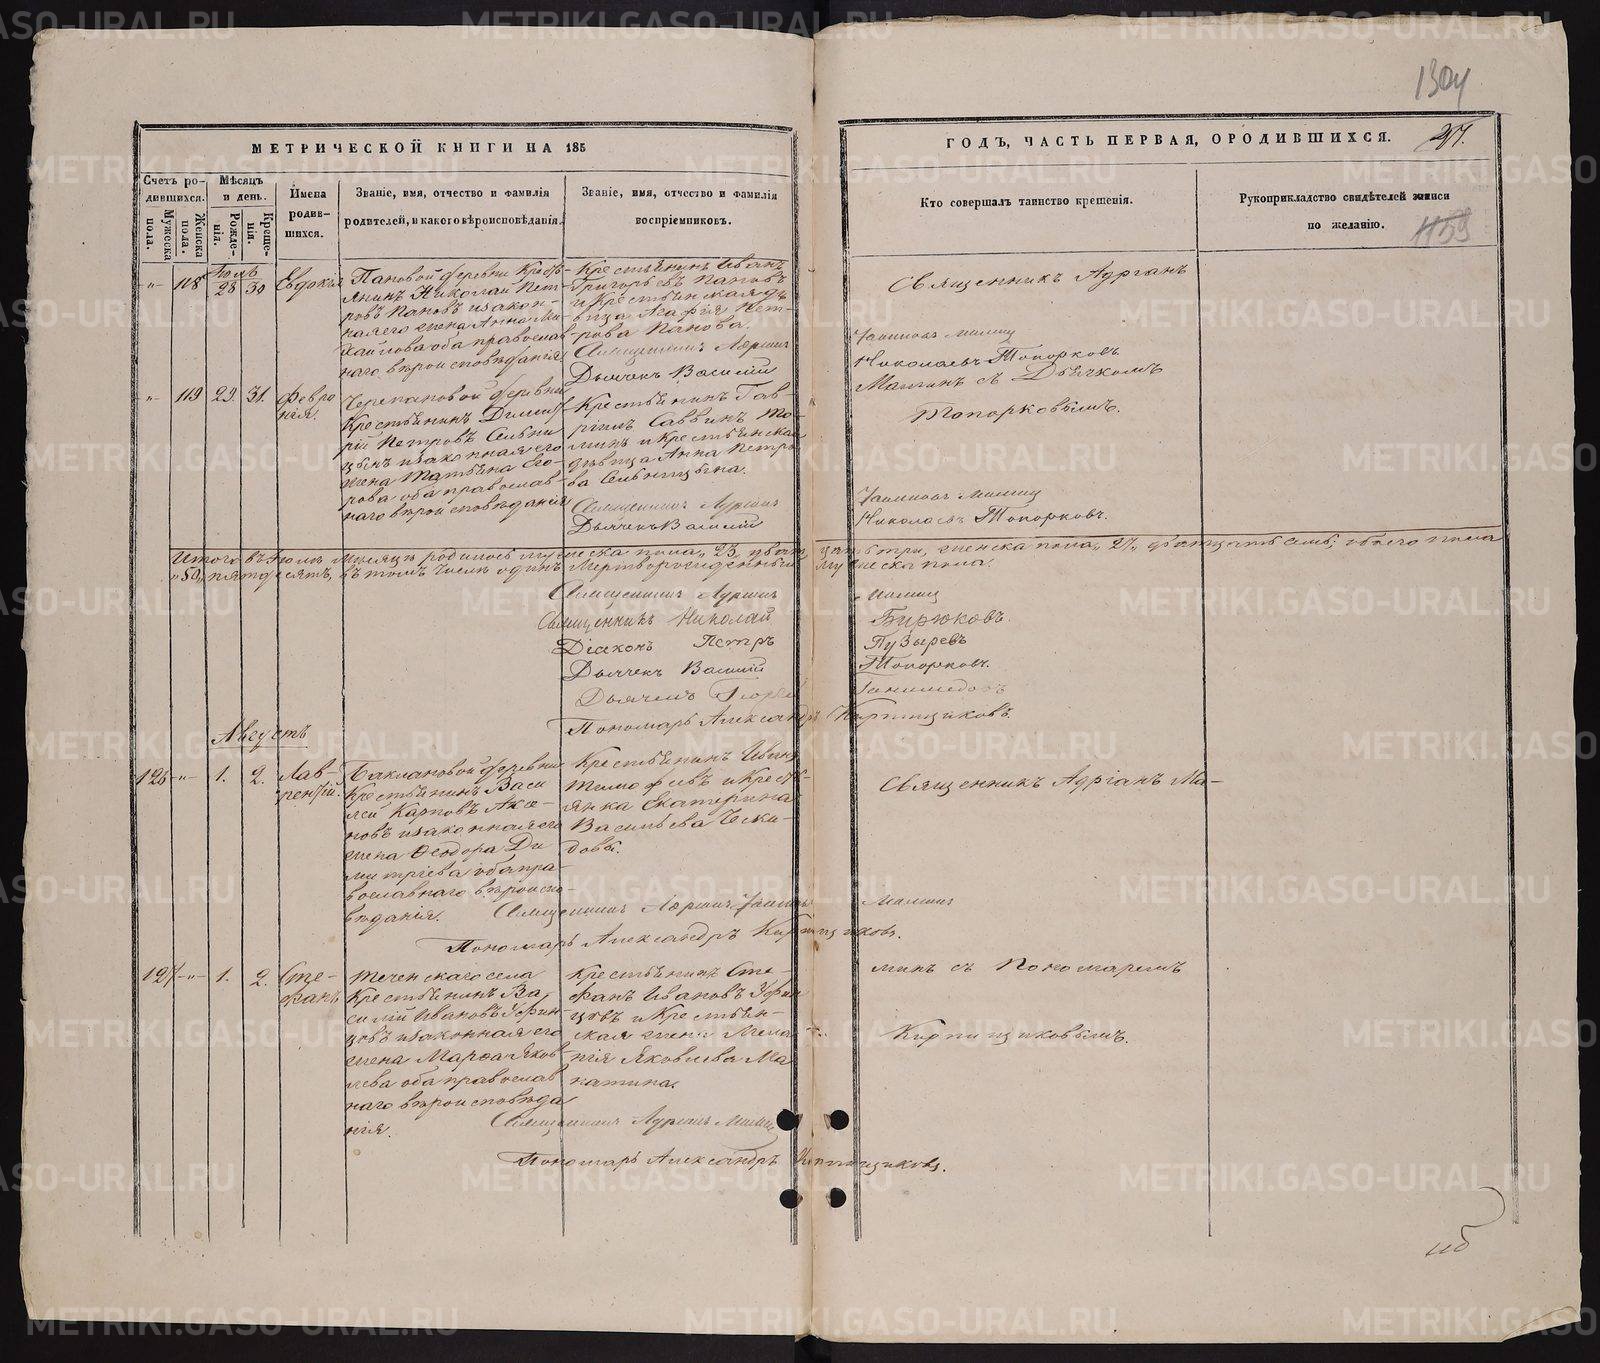 1304
МЕТРИЧЕСКОЙ КНИГИ НА 185
ГОДЪ, ЧАСТЬ ПЕРВАЯ, О РОДИВШИХСЯ.
Счетъ ро-
дившихся.
Мужеска пола.
Женска пола.
Мѣсяцъ
и день.
Рожде-
нія.
Креще-
нія.
Имена
родив-
шихся.
Званіе, имя, отчество и фамилія
родителей, и какого вѣроисповѣданія.
Званіе, имя, отчество и фамилія
воспріемниковъ.
Кто совершалъ таинство крещенія.
Рукоприкладство свидѣтелей записи
по желанію.
1159
-"- 118 Іюль 28 30 Евдокія
Пановой деревни Кресть-
янинъ Николай Пет-
ровъ Пановъ и закон-
ная его жена Анна Ми-
хайлова оба православ-
наго вѣроисповѣданія
Крестьянинъ Иванъ
Григорьевъ Пановъ
и крестьянская дѣ-
вица Агафія Пет-
рова Панова.
Священникъ Адріанъ
Дьячекъ Василій
Священникъ Адріанъ
Николаевъ Топорковъ
Маминъ съ Дьячкомъ
Топорковымъ.
-"- 119 29. 31. Февро
нія.
Черепановой деревни
Крестьянинъ Димит-
рій Петровъ Сельни
цынъ и законная его
жена Татьяна Его-
рова оба православ-
наго вѣроисповѣданія
Крестьянинъ Гав-
ріилъ Саввинъ
и Крестьянская
дѣвица Анна Петро
ва Сельницына.
Священникъ Адріанъ
Дьячекъ Василій
Николаевъ Топорковъ.
Итого въ Іюлѣ Мѣсяцѣ родилось мужеска пола „23„ двадцать три, женска пола „27„ двадцать семь; обоего пола
„50„ пятьдесятъ, въ томъ числѣ одинъ мертворожденный мужеска пола.
Священникъ Адріанъ Маминъ
Священникъ Николай Бирюковъ.
Діаконъ Петръ Пузыревъ
Дьячекъ Василій Топорковъ.
Дьячекъ
Пономарь Александръ Кирпищиковъ.
Августъ
126 -"- 1. 2. Лав-
рентій.
Баклановой деревни
Крестьянинъ Васи
лей Карповъ Аксе-
новъ и законная его
жена Ѳеодора Ди
митріева оба пра-
вославнаго вѣроиспо-
вѣданія.
Крестьянинъ Иванъ
Тимофеевъ и Кресть-
янка Екатерина
Васильева Чески-
довы.
Священникъ Адріанъ Ма-
Священникъ Адріанъ Маминъ
Пономарь Александръ Кирпищиковъ.
127 -"- 1. 2. Сте-
фанъ
Теченскаго села
Крестьянинъ Ва
силій Ивановъ Уфин
цовъ и законная его
жена Марѳа Яков
лева оба православ
наго вѣроисповѣда
нія.
Крестьянинъ Сте-
фанъ Ивановъ Уфин
цовъ и Крестьян-
ская жена Мела-
нія Яковлева Ма
катина.
минъ съ Пономаремъ
Кирпищиковымъ.
Священникъ Адріанъ Маминъ
Пономарь Александръ Кирпищиковъ.
METRIKI.GASO-URAL.RU